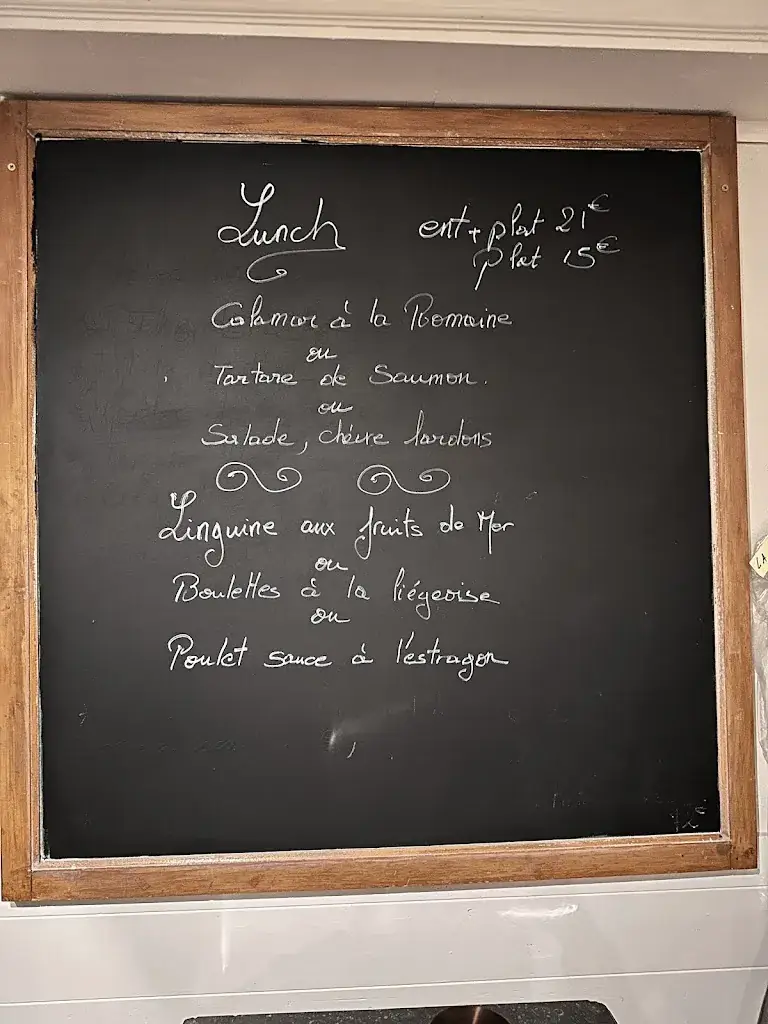 Lunch
ent + plat 21€
plat 15€
Calamar à la Romaine
ou
Tartare de Saumon.
ou
Salade, chèvre lardons
Linguine aux fruits de Mer
ou
Boulettes à la liégeoise
ou
Poulet sauce à l'estragon